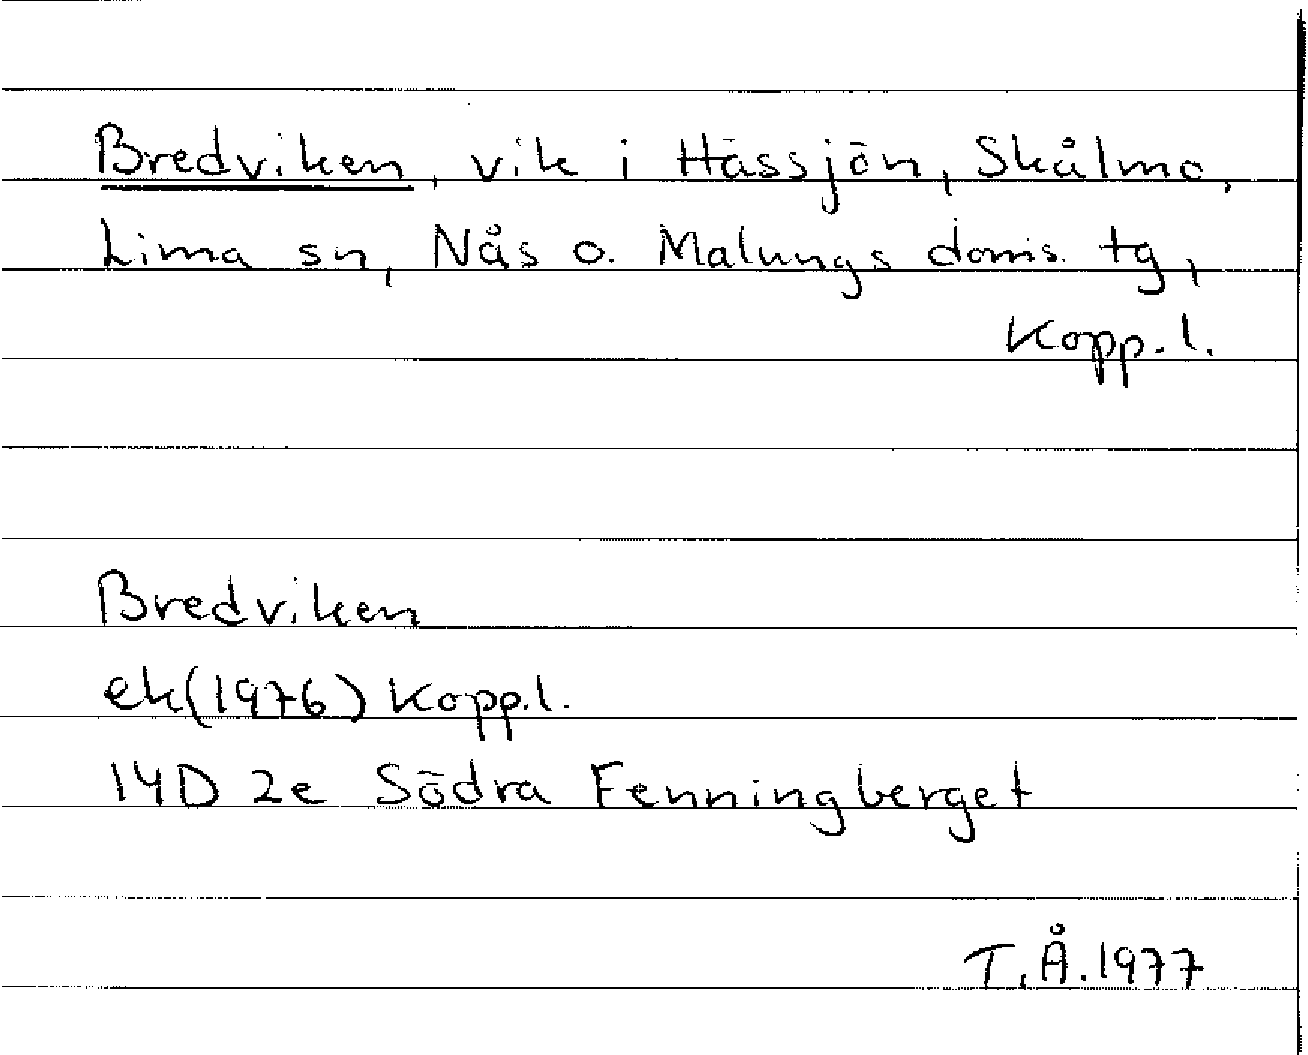 Bredviken, vik i Hässjön, Skålmo,
Lima sn, Nås o. Malungs doms. tg,
Kopp. l.
Bredviken
ek(1976) Kopp.l.
14D 2e Södra Fenningberget
T.Å.1977